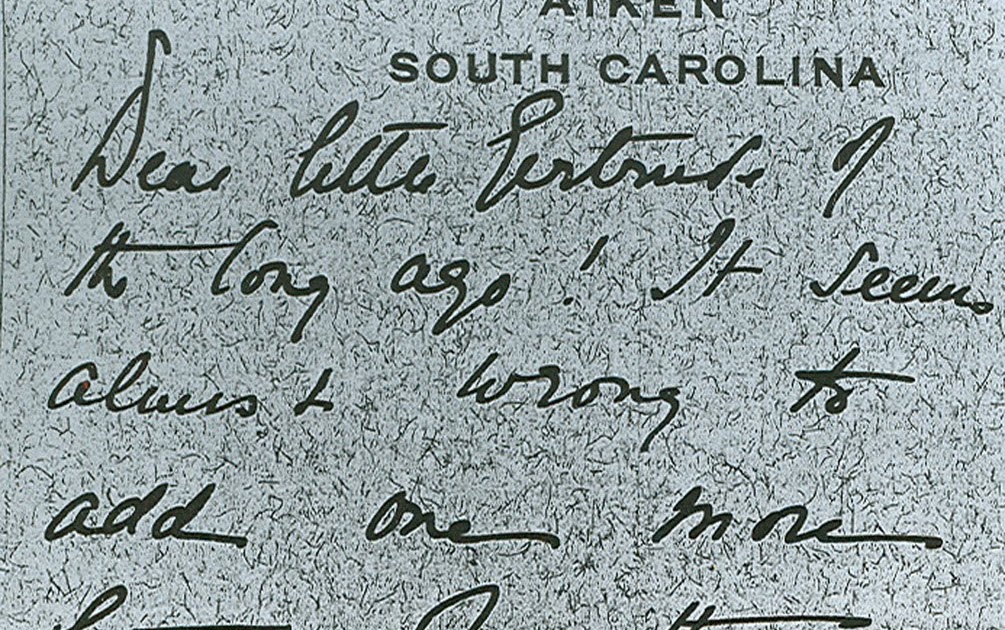 AIKEN
SOUTH CAROLINA
Dear little Gertrude of
the long ago! It seems
almost wrong to
add one more